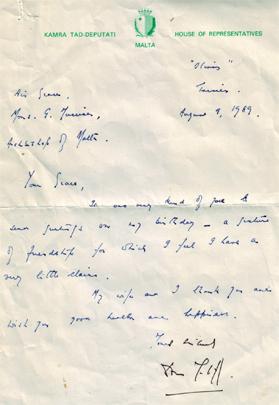 KAMRA TAD-DEPUTATI
HOUSE OF REPRESENTATIVES
MALTA
"Olives"
Tarxien.
August 9, 1969.
His Grace.
Mons. G.
Archbishop of Malta.
Your Grace,
It was very kind of you to
send greetings on my birthday — a gesture
of friendship for which I feel I have a
very little claim.
My wife and I thank you and
wish you good health and happiness.
Yours
Dom